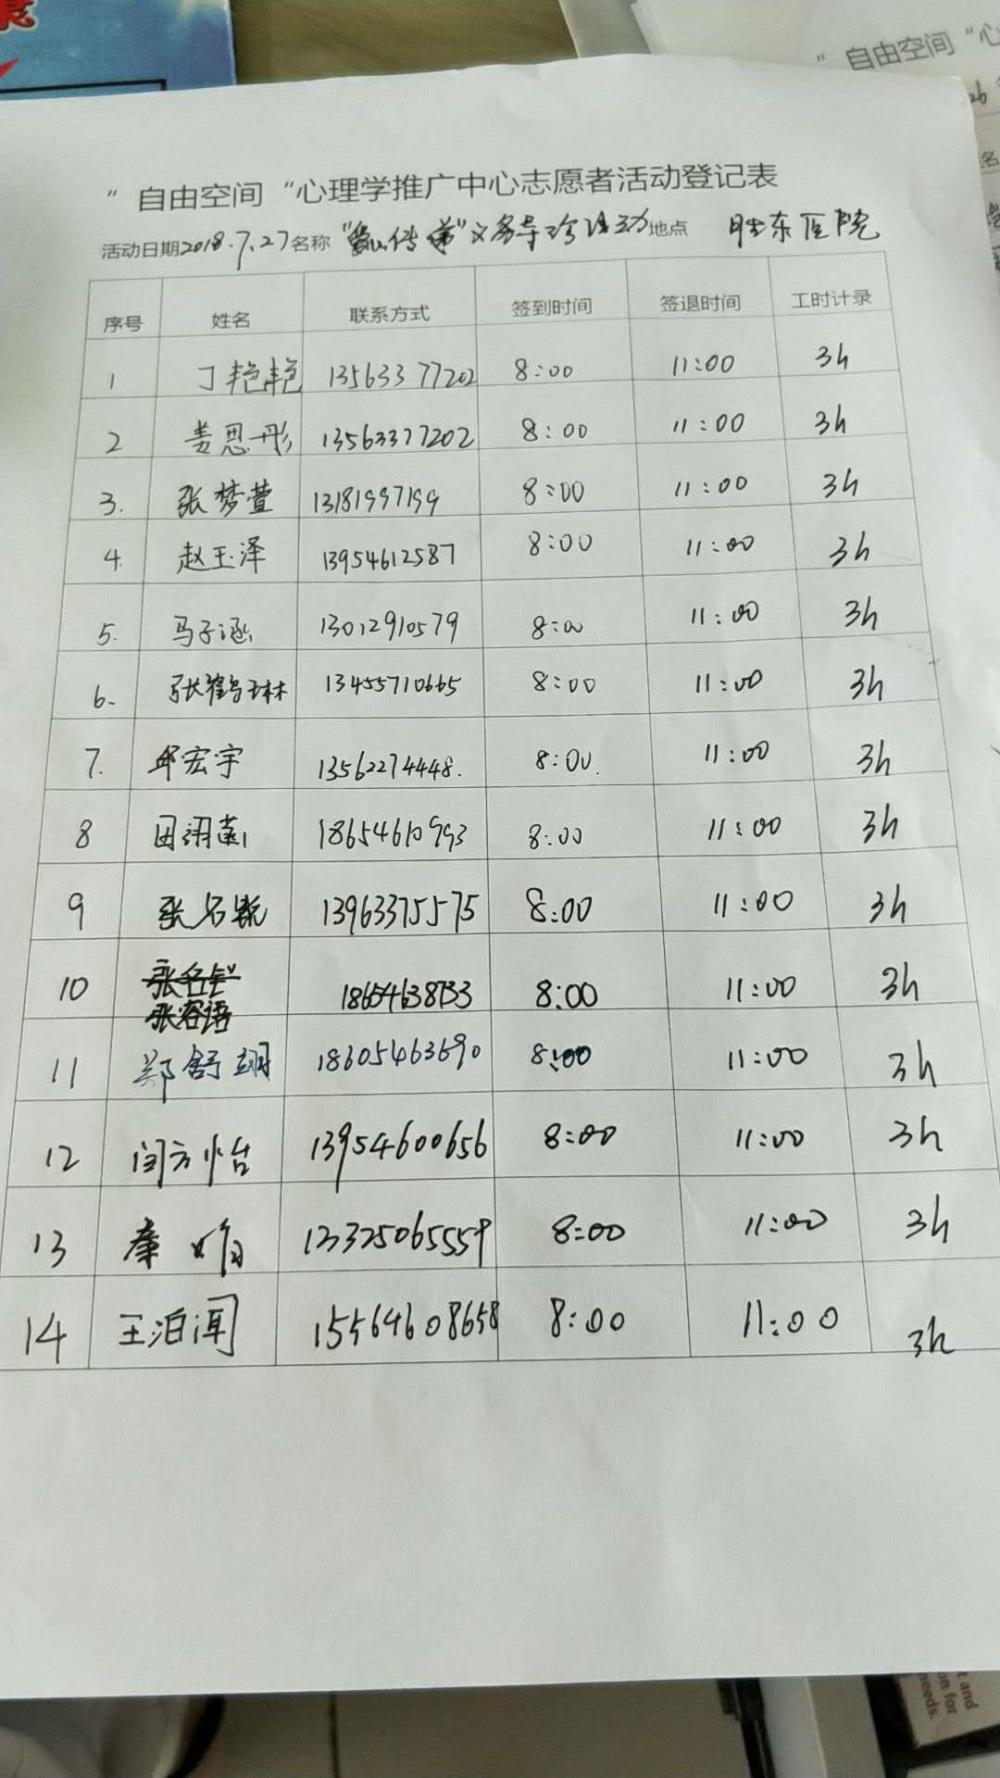 " 自由空间 "心
" 自由空间 "心理学推广中心志愿者活动登记表
活动日期2018.7.27名称 传 义务导诊活动 地点 胜东医院
序号 姓名 联系方式 签到时间 签退时间 工时计录
1 丁艳艳 13563377202 8:00 11:00 3h
2 姜思彤 13563377202 8:00 11:00 3h
3. 张梦萱 13181997199 8:00 11:00 3h
4. 赵玉泽 13954612587 8:00 11:00 3h
5. 马子涵 13012910579 8:00 11:00 3h
6. 张鹤琳 13455710665 8:00 11:00 3h
7. 邱宏宇 13562274448. 8:00. 11:00 3h
8 田翊菡 18654610993 8:00 11:00 3h
9 张名毓 13963375575 8:00 11:00 3h
10 张容语 18654638733 8:00 11:00 3h
11 郑舒翊 18605463690 8:00 11:00 3h
12 闫方怡 13954600656 8:00 11:00 3h
13 秦娟 13325065559 8:00 11:00 3h
14 王泊闻 15564608658 8:00 11:00 3h
and
on for
needs.